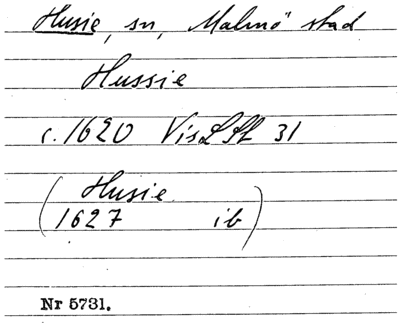 Husie, sn, Malmö stad
Hussie
c. 1620 VisLSt 31
(Husie
1627 ib)
Nr 5731.